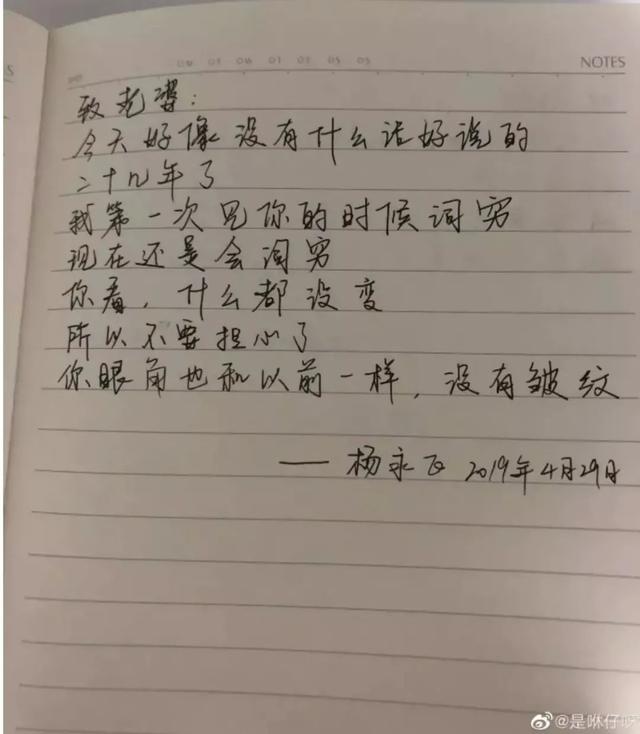 NOTES
致老婆：
今天好像没有什么话好说的
二十几年了
我第一次见你的时候词穷
现在还是会词穷
你看，什么都没变
所以不要担心了
你眼角也和以前一样，没有皱纹
——杨永正 2019年4月29日
@是咻仔呀